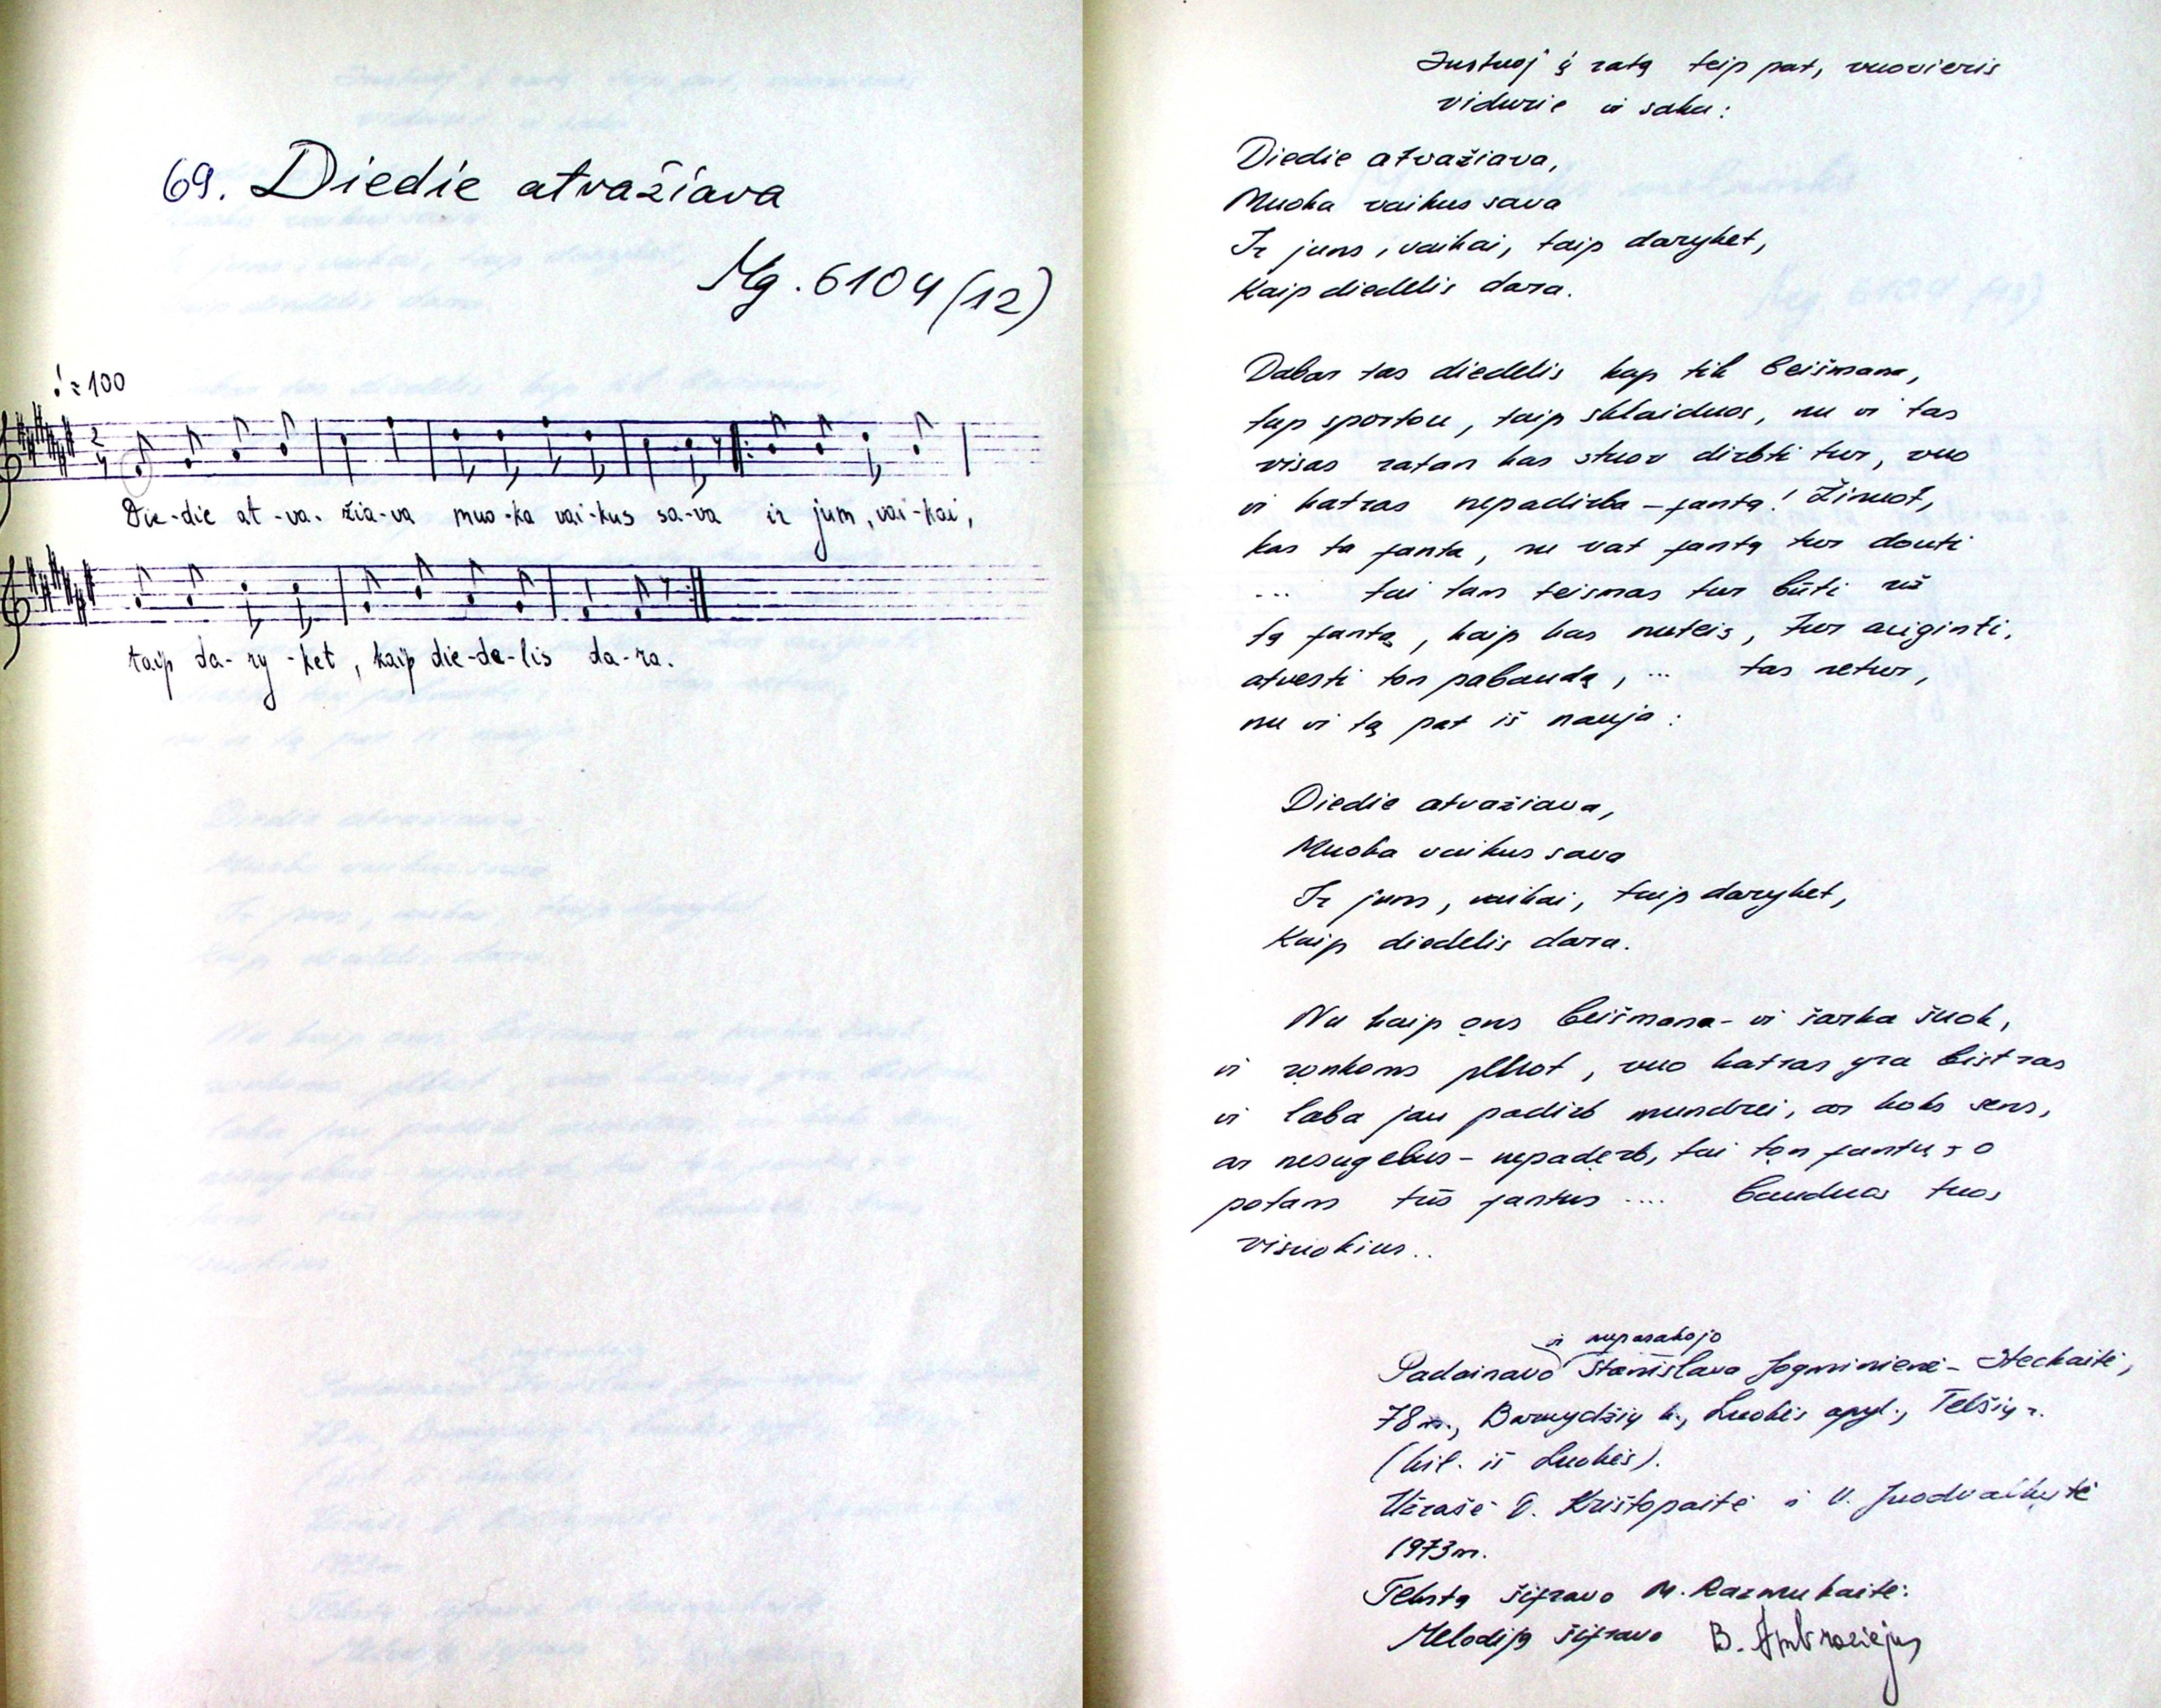 69. Diedie atvažiava
Mg. 6104 (12)
♩ = 100
2
4
Die-die at-va-žia-va muo-ka vai-kus sa-va ir jum, vai-kai,
taip da-ry-ket, kaip die-de-lis da-ra.
Sustuoj į ratą teip pat, vuovieris
vidurie vi saka:
Diedie atvažiava,
Muoka vaikus sava
Ir jums, vaikai, taip daryket,
Kaip diedelis dara.
Dabar tas diedelis kap tik beišmana,
tap sportou, taip sklaiduos, nu vi tas
visas ratan kas stuov dirbti tur, vuo
vi katras nepadirba – fantą! Žinuot,
kas ta fanta, nu vat fantą tur douti
... tai tam teismas tur būti už
tą fantą, kaip kas nuteis, tur
atvesti ton pabaudą, ... tas netur,
nu vi tą pat iš nauja:
Diedie atvažiava,
Muoka vaikus sava
Ir jums, vaikai, taip daryket,
Kaip diedelis dara.
Nu kaip ons beišmana – vi šarka šuok,
vi ronkoms plkot, vuo katras yra bistras
vi laba jau padirb mundrei, ar koks sens,
ar nesugebus – nepaderb, tai ton fantu - o
potam tūs fantus .... bauduos tuos
visuokius..
Padainavo vi nupasakojo Stanislava Jogminienė - Stechaitė,
78 m., Luokės apyl., Telšių r.
(kil. iš Luokės).
Užrašė D. Krištopaitė i V. Juodvalkytė
1973 m.
Tekstą šifravo M. Razmukaitė.
Melodiją šifravo B. Ambraziejus